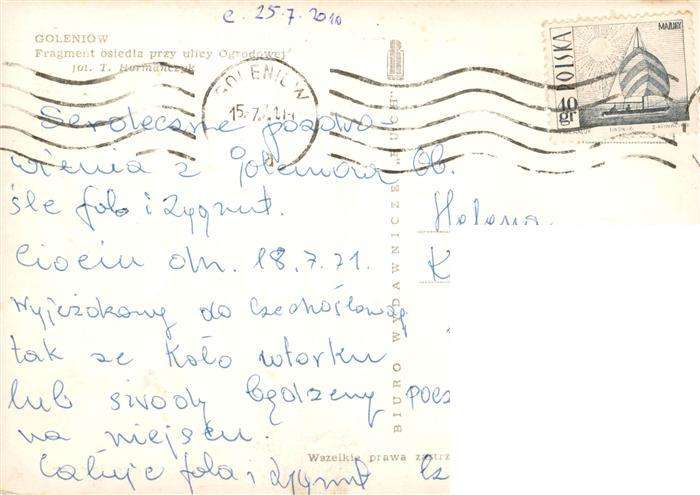 c. 25.7.2010
GOLENIÓW
Fragment osiedla przy ulicy Ogrodowej
fot. T. Hermańczyk
GOLENIÓW
15.7.
POLSKA
MAZURY
40 gr
Serdeczne pozdro-
wienia z Goleniowa
śle Jola i Zygmunt.
Ciociu dn. 18.7.71.
Wyjeżdżamy do Czechosłowacj
tak że koło wtorku
lub środy będziemy
na miejscu.
Całuję Jola i Zygmunt
Ob.
Helena
K
pocz
BIURO WYDAWNICZE „RUCH”
Wszelkie prawa zastrz